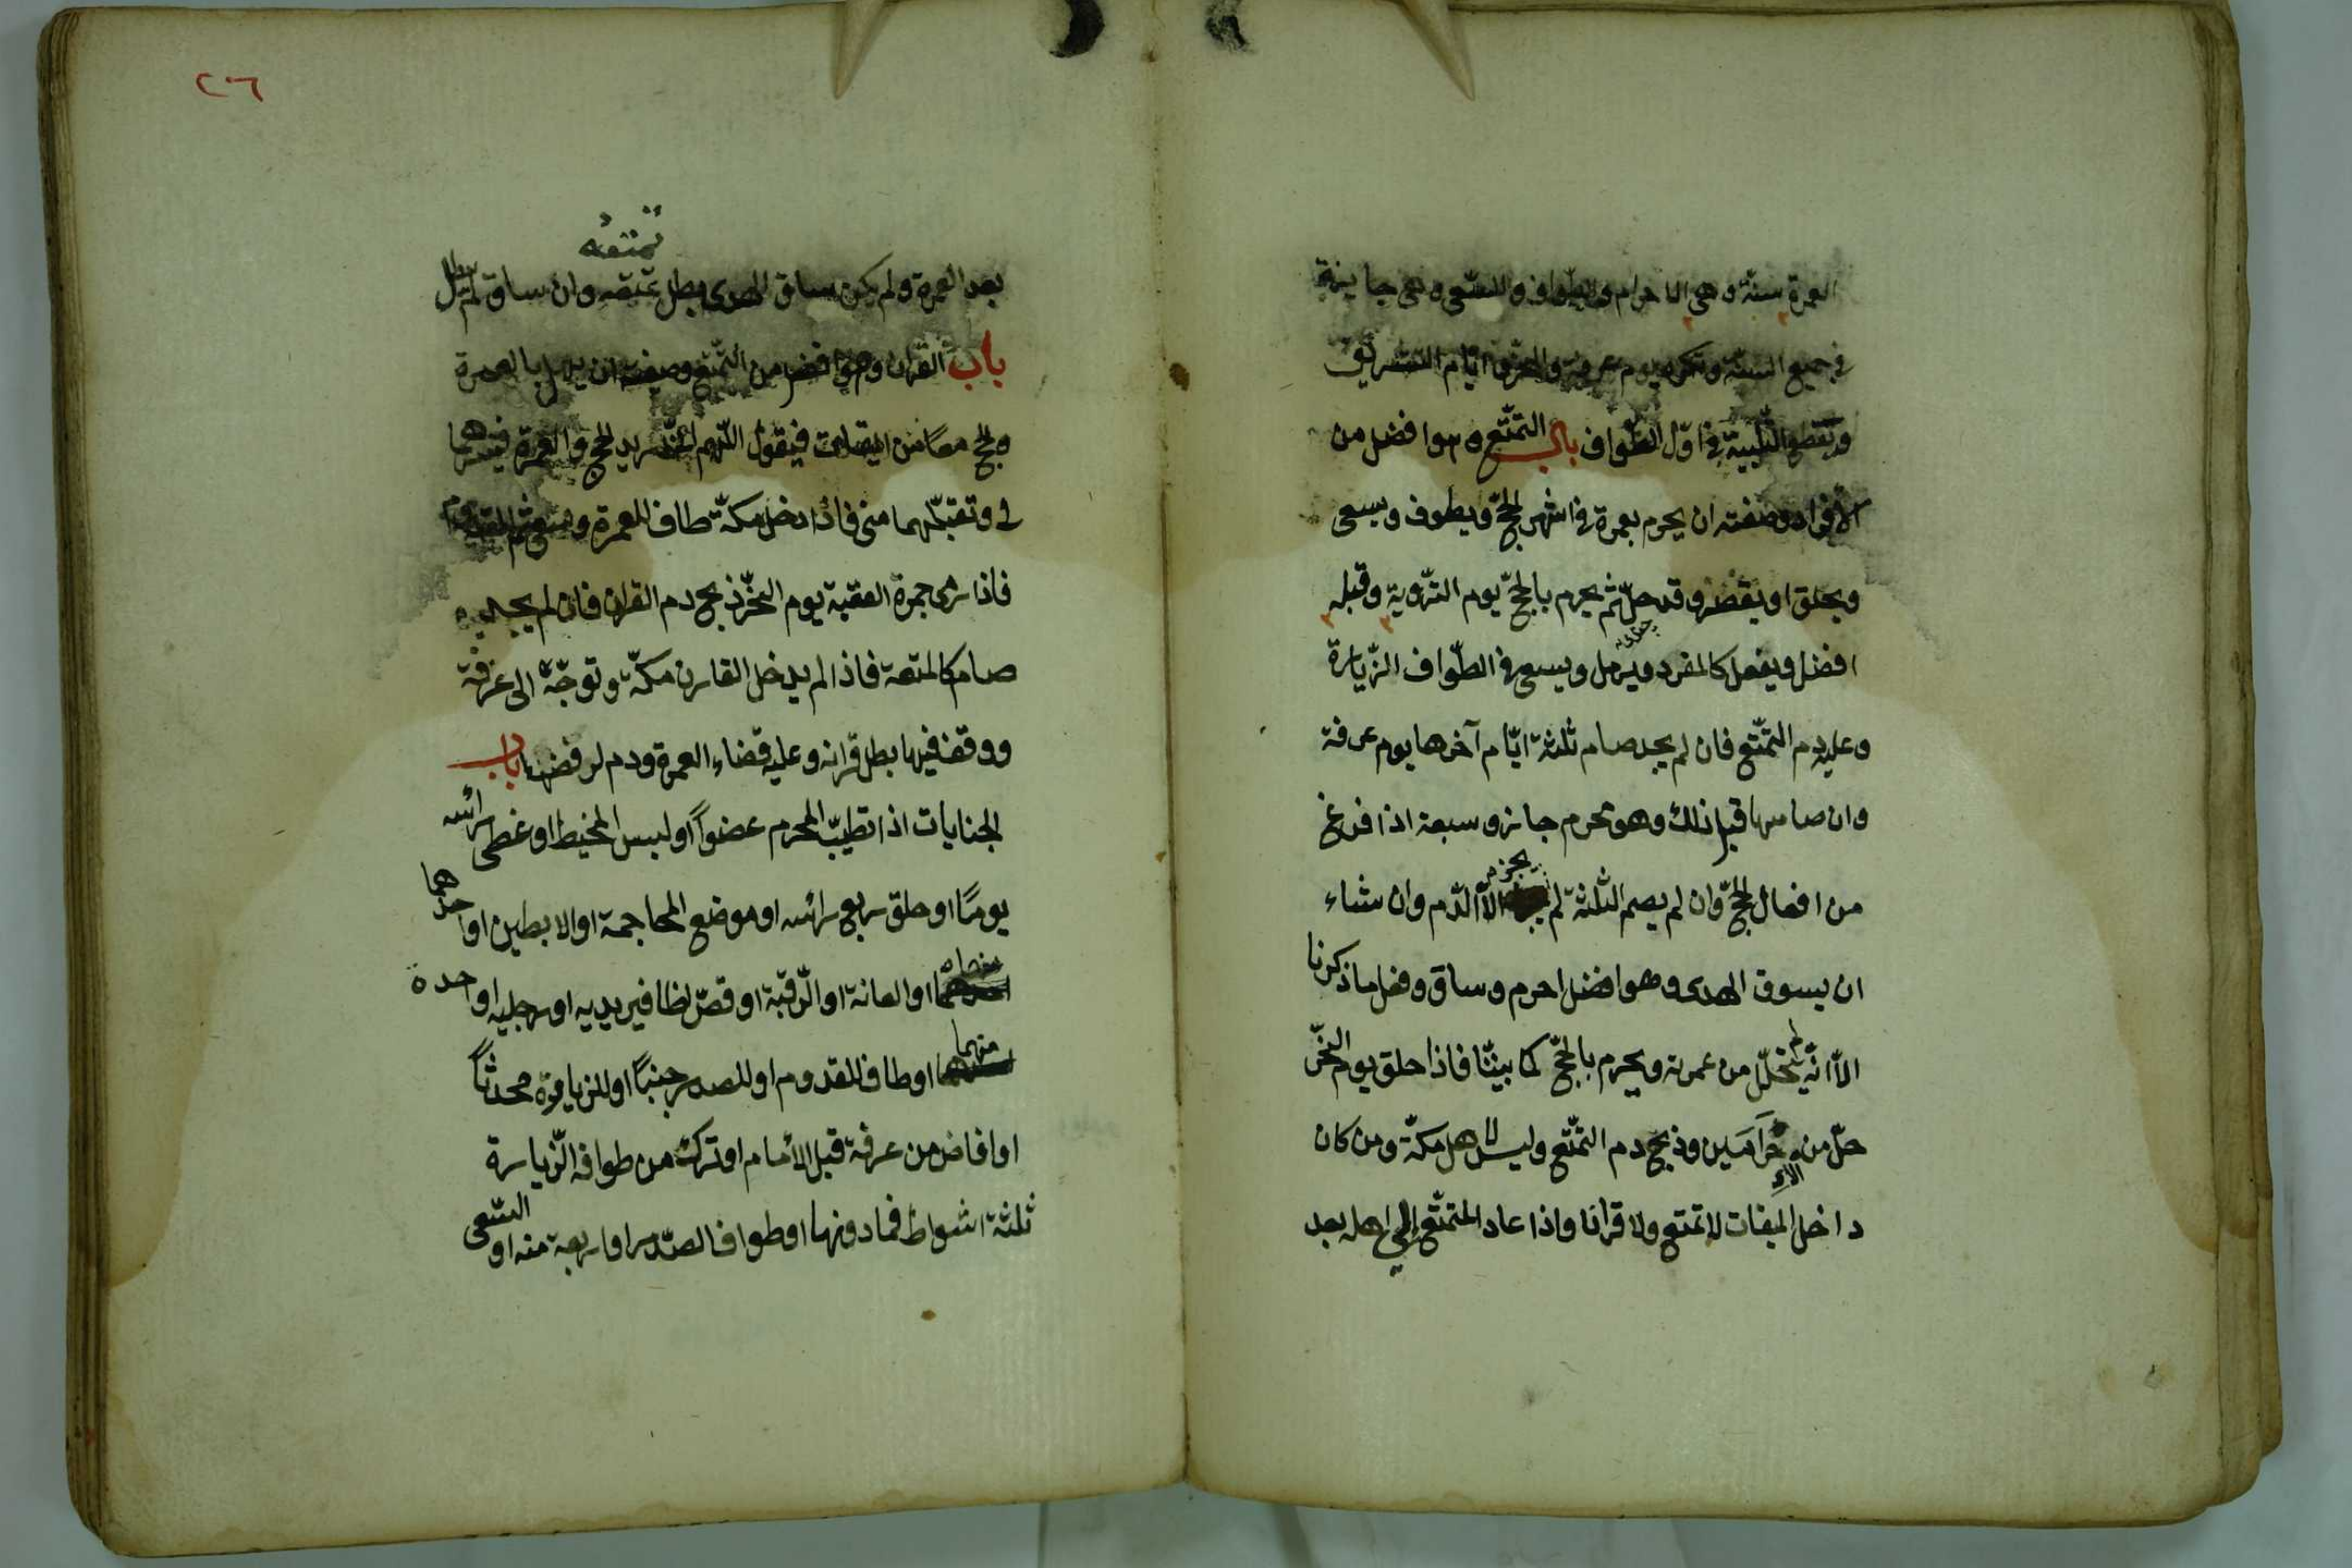 العمرة سنة وهى الاحرام والطّواف والسّعى وهى جايزة
فى جميع السنة وتكره يوم عرفة والنّحر وايّام التشريق
ويقطع التّلبية فى اوّل الطّواف باب التمتّع وهوا فضل من
الافراد وصفته ان يحرم بعمرة فى اشهر الحجّ ويطوف ويسعى
ويحلق او يقصّر وقد حلّ ثم يحرم بالحجّ يوم التّروية وقبله
افضل ويفعل كالمفرد ويرمل ويسعى فى الطّواف الزّيارة
وعليه دم التمتّع فان لم يجد صام ثلثة ايّام آخرها يوم عرفة
وان صامها قبل ذلك وهو محرم جاز وسبعة اذا فرغ
من افعال الحجّ وان لم يصم الثلثة لم يجزه الاّ الدّم وان شاء
ان يسوق الهدى وهو افضل احرم وساق وفعل ما ذكرنا
الاّ انّه لم يتحلّل من عمرته ويحرم بالحجّ كما بيّنّا فاذا حلق يوم النحر
حلّ من الاحرامين وذبح دم التمتّع وليس لاهل مكّة ومن كان
داخل الميقات لا تمتع ولا قرانا واذا عاد المتمتّع إلى اهله بعد
٢٠٦
تمتعه
بعد العمرة ولم يكن ساق الهدى بطل تمتعه وان ساق لم يبطل
باب القران وهو افضل من التّمتّع وصفته ان يهل بالعمرة
والحج معًا من الميقات فيقول اللّهم انّى اريد الحج والعمرة فيسرهما
لى وتقبّلهما منى فاذا دخل مكّة طاف للعمرة وسعى ثم للقدوم
فاذا رمى جمرة العقبة يوم النحر ذبح دم القران فان لم يجد
صام كالمتعة فاذا لم يدخل القارن مكّة وتوجّه الى عرفة
ووقف فيها بطل قرانه وعليه قضاء العمرة ودم لرفضها باب
الجنايات اذا تطيّب المحرم عضواً او لبس المخيط او غطى رائسه
يومًا او حلق ربع رائسه او موضع المحاجمة او الابطين او احدهما
او العانة او الرّقبة او قصّ اظافير يديه او رجليه او احدة
منهما او طاف للقدوم او للصدر جنبًا او للزيارة محدثًا
او افاض من عرفة قبل الأمام او ترك من طواف الزّيارة
ثلثة اشواط فما دونها او طواف الصّدر او اربعة منه او السّعى